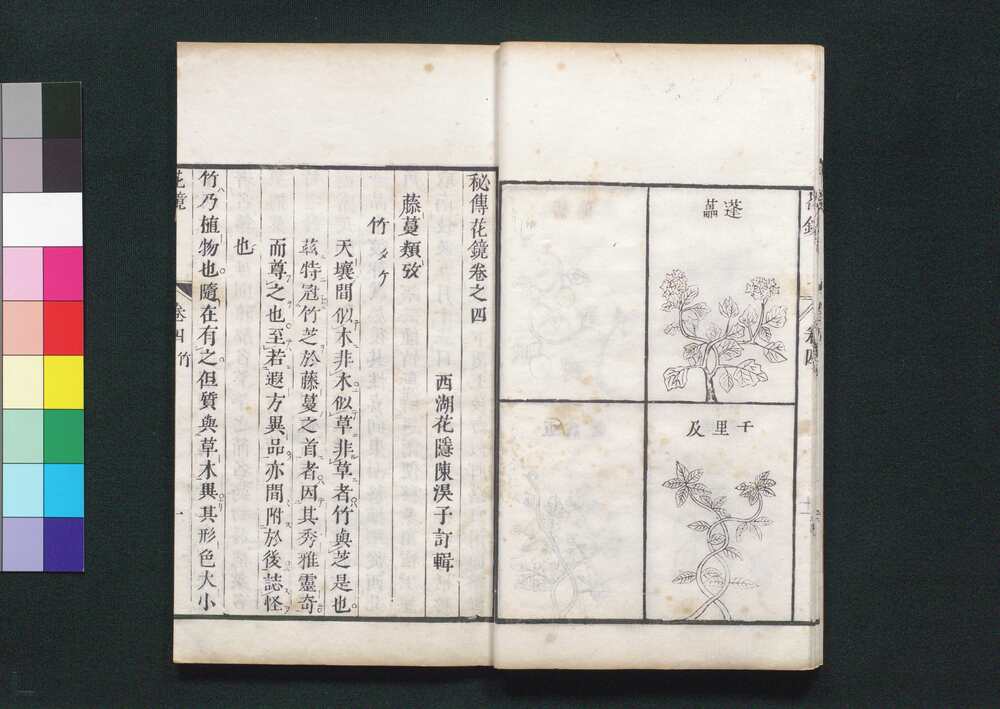 蓬虆
千里及
秘傳花鏡卷之四
西湖花隱陳淏子訂輯
藤蔓類攷
竹 タケ
天壤間似木非木似草非草者竹與芝是也
兹特冠竹芝於藤蔓之首者因其秀雅靈奇
而尊之也至若遐方異品亦間附於後誌怪
也
竹乃植物也隨在有之但質與草木異其形色大小
花鏡
卷四 竹
一